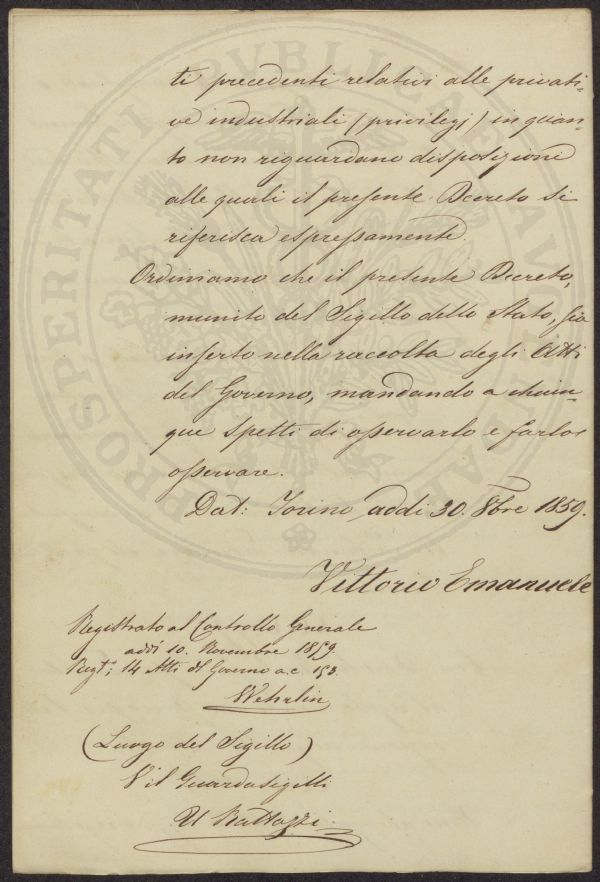 ti precedenti relativi alle privati-
ve industriali (privilegj) in quan-
to non riguardano disposizioni
alle quali il presente Decreto si
riferisca espressamente.
Ordiniamo che il presente Decreto,
munito del Sigillo dello Stato, sia
inserto nella raccolta degli Atti
del Governo, mandando a chiun-
que spetti di osservarlo e farlo
osservare.
Dat: Torino addì 30. 8bre 1859.
Vittorio Emanuele
Registrato al Controllo Generale
addì 10. Novembre 1859.
Regto: 14 Atti del Governo a.c. 153.
Wehrlin
(Luogo del Sigillo)
V° il Guardasigilli
U Rattazzi
PROSPERITATI PVBLICAE AVGENDAE